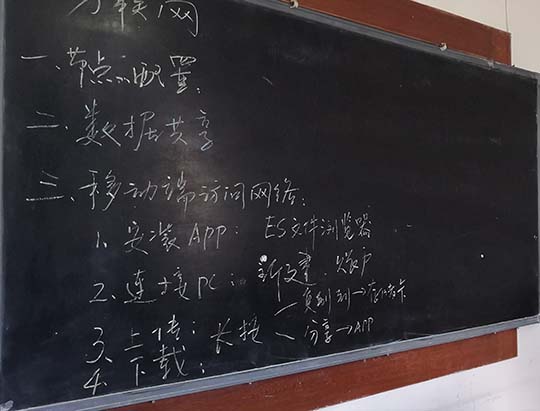 联网
一、节点的配置:
二、数据共享
三、移动端访问网络:
1. 安装 APP: ES文件浏览器
2. 连接 PC: 新建
3. 上传: 长按 — 复制到→存储卡
4. 下载: — 分享→APP